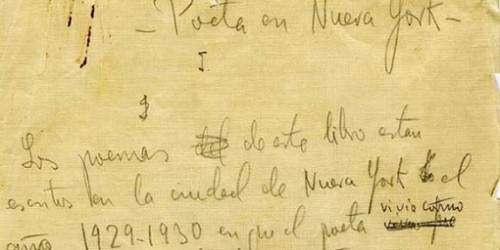 - Poeta en Nueva York -
I
Los poemas de este libro estan
escritos en la ciudad de Nueva York el
año 1929-1930 en que el poeta vivió como